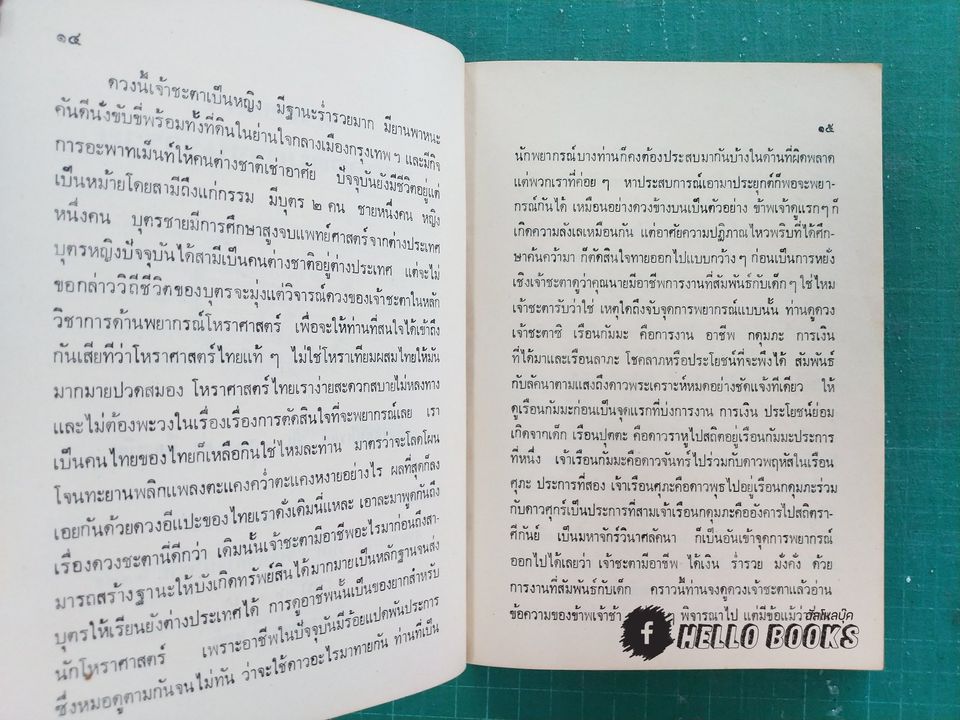 ๑๔
ดวงนี้เจ้าชะตาเป็นหญิง มีฐานะร่ำรวยมาก มียานพาหนะ
คันดีนั่งขับขี่พร้อมทั้งที่ดินในย่านใจกลางเมืองกรุงเทพฯ และมีกิจ
การอะพาทเม็นท์ให้คนต่างชาติเช่าอาศัย ปัจจุบันยังมีชีวิตอยู่แต่
เป็นหม้ายโดยสามีถึงแก่กรรม มีบุตร ๒ คน ชายหนึ่งคน หญิง
หนึ่งคน บุตรชายมีการศึกษาสูงจบแพทย์ศาสตร์จากต่างประเทศ
บุตรหญิงปัจจุบันได้สามีเป็นคนต่างชาติอยู่ต่างประเทศ แต่จะไม่
ขอกล่าววิถีชีวิตของบุตรจะมุ่งแต่วิจารณ์ดวงของเจ้าชะตาในหลัก
วิชาการด้านพยากรณ์โหราศาสตร์ เพื่อจะให้ท่านที่สนใจได้เข้าถึง
กันเสียทีว่าโหราศาสตร์ไทยแท้ ๆ ไม่ใช่โหราเทียมผสมไทยให้มัน
มากมายปวดสมอง โหราศาสตร์ไทยเราง่ายสะดวกสบายไม่หลงทาง
และไม่ต้องพะวงในเรื่องเรื่องการตัดสินใจที่จะพยากรณ์เลย เรา
เป็นคนไทยของไทยก็เหลือกินใช่ไหมละท่าน มาตรว่าจะโลดโผน
โจนทะยานพลิกแพลงตะแคงคว่ำตะแคงหงายอย่างไร ผลที่สุดก็ลง
เอยกันด้วยดวงอีแปะของไทยเราดั่งเดิมนี่แหละ เอาละมาพูดกันถึง
เรื่องดวงชะตานี้ดีกว่า เดิมนั้นเจ้าชะตามีอาชีพอะไรมาก่อนถึงสา-
มารถสร้างฐานะให้บังเกิดทรัพย์สินได้มากมายเป็นหลักฐานจนส่ง
บุตรให้เรียนยังต่างประเทศได้ การดูอาชีพนั้นเป็นของยากสำหรับ
นักโหราศาสตร์ เพราะอาชีพในปัจจุบันมีร้อยแปดพันประการ
ซึ่งหมอดูตามกันจนไม่ทัน ว่าจะใช้ดาวอะไรมาทายกัน ท่านที่เป็น
๑๕
นักพยากรณ์บางท่านก็คงต้องประสบมากันบ้างในด้านที่ผิดพลาด
แต่พวกเราที่ค่อย ๆ หาประสบการณ์เอามาประยุกต์ก็พอจะพยา-
กรณ์กันได้ เหมือนอย่างดวงข้างบนเป็นตัวอย่าง ข้าพเจ้าดูแรกๆ ก็
เกิดความลังเลเหมือนกัน แต่อาศัยความปฏิภาณไหวพริบที่ได้ศึก-
ษาค้นคว้ามา ก็ตัดสินใจทายออกไปแบบกว้าง ๆ ก่อนเป็นการหยั่ง
เชิงเจ้าชะตาดูว่าคุณนายมีอาชีพการงานที่สัมพันธ์กับเด็กๆ ใช่ไหม
เจ้าชะตารับว่าใช่ เหตุใดถึงจับจุดการพยากรณ์แบบนั้น ท่านดูดวง
เจ้าชะตาซิ เรือนกัมมะ คือการงาน อาชีพ กดุมภะ การเงิน
ที่ได้มาและเรือนลาภะ โชคลาภหรือประโยชน์ที่จะพึงได้ สัมพันธ์
กับลัคนาตามแสงถึงดาวพระเคราะห์หมดอย่างชัดแจ้งทีเดียว ให้
ดูเรือนกัมมะก่อนเป็นจุดแรกที่บ่งการงาน การเงิน ประโยชน์ย่อม
เกิดจากเด็ก เรือนปุตตะ คือดาวราหูไปสถิตอยู่เรือนกัมมะประการ
ที่หนึ่ง เจ้าเรือนกัมมะคือดาวจันทร์ไปร่วมกับดาวพฤหัสในเรือน
ศุภะ ประการที่สอง เจ้าเรือนศุภะคือดาวพุธไปอยู่เรือนกดุมภะร่วม
กับดาวศุกร์เป็นประการที่สามเจ้าเรือนกดุมภะคืออังคารไปสถิตรา-
ศีกันย์ เป็นมหาจักร์วินาศลัคนา ก็เป็นอันเข้าจุดการพยากรณ์
ออกไปได้เลยว่า เจ้าชะตามีอาชีพ ได้เงิน ร่ำรวย มั่งคั่ง ด้วย
การงานที่สัมพันธ์กับเด็ก คราวนี้ท่านจงดูดวงเจ้าชะตาแล้วอ่าน
ข้อความของข้าพเจ้าช้า ๆ พิจารณาไป แต่มีข้อแม้ว่า
ฮัลโหลบุ๊ค
HELLO BOOKS